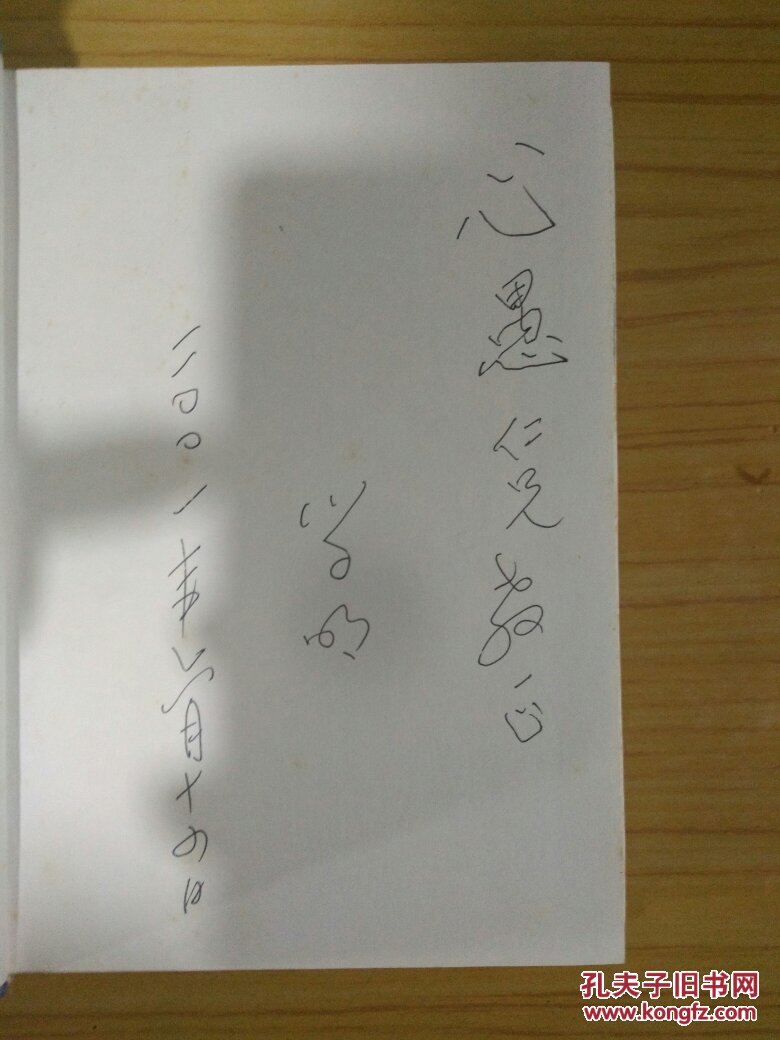 心愚仁兄教正
学明
二〇〇一年六月十六日
孔夫子旧书网
www.kongfz.com